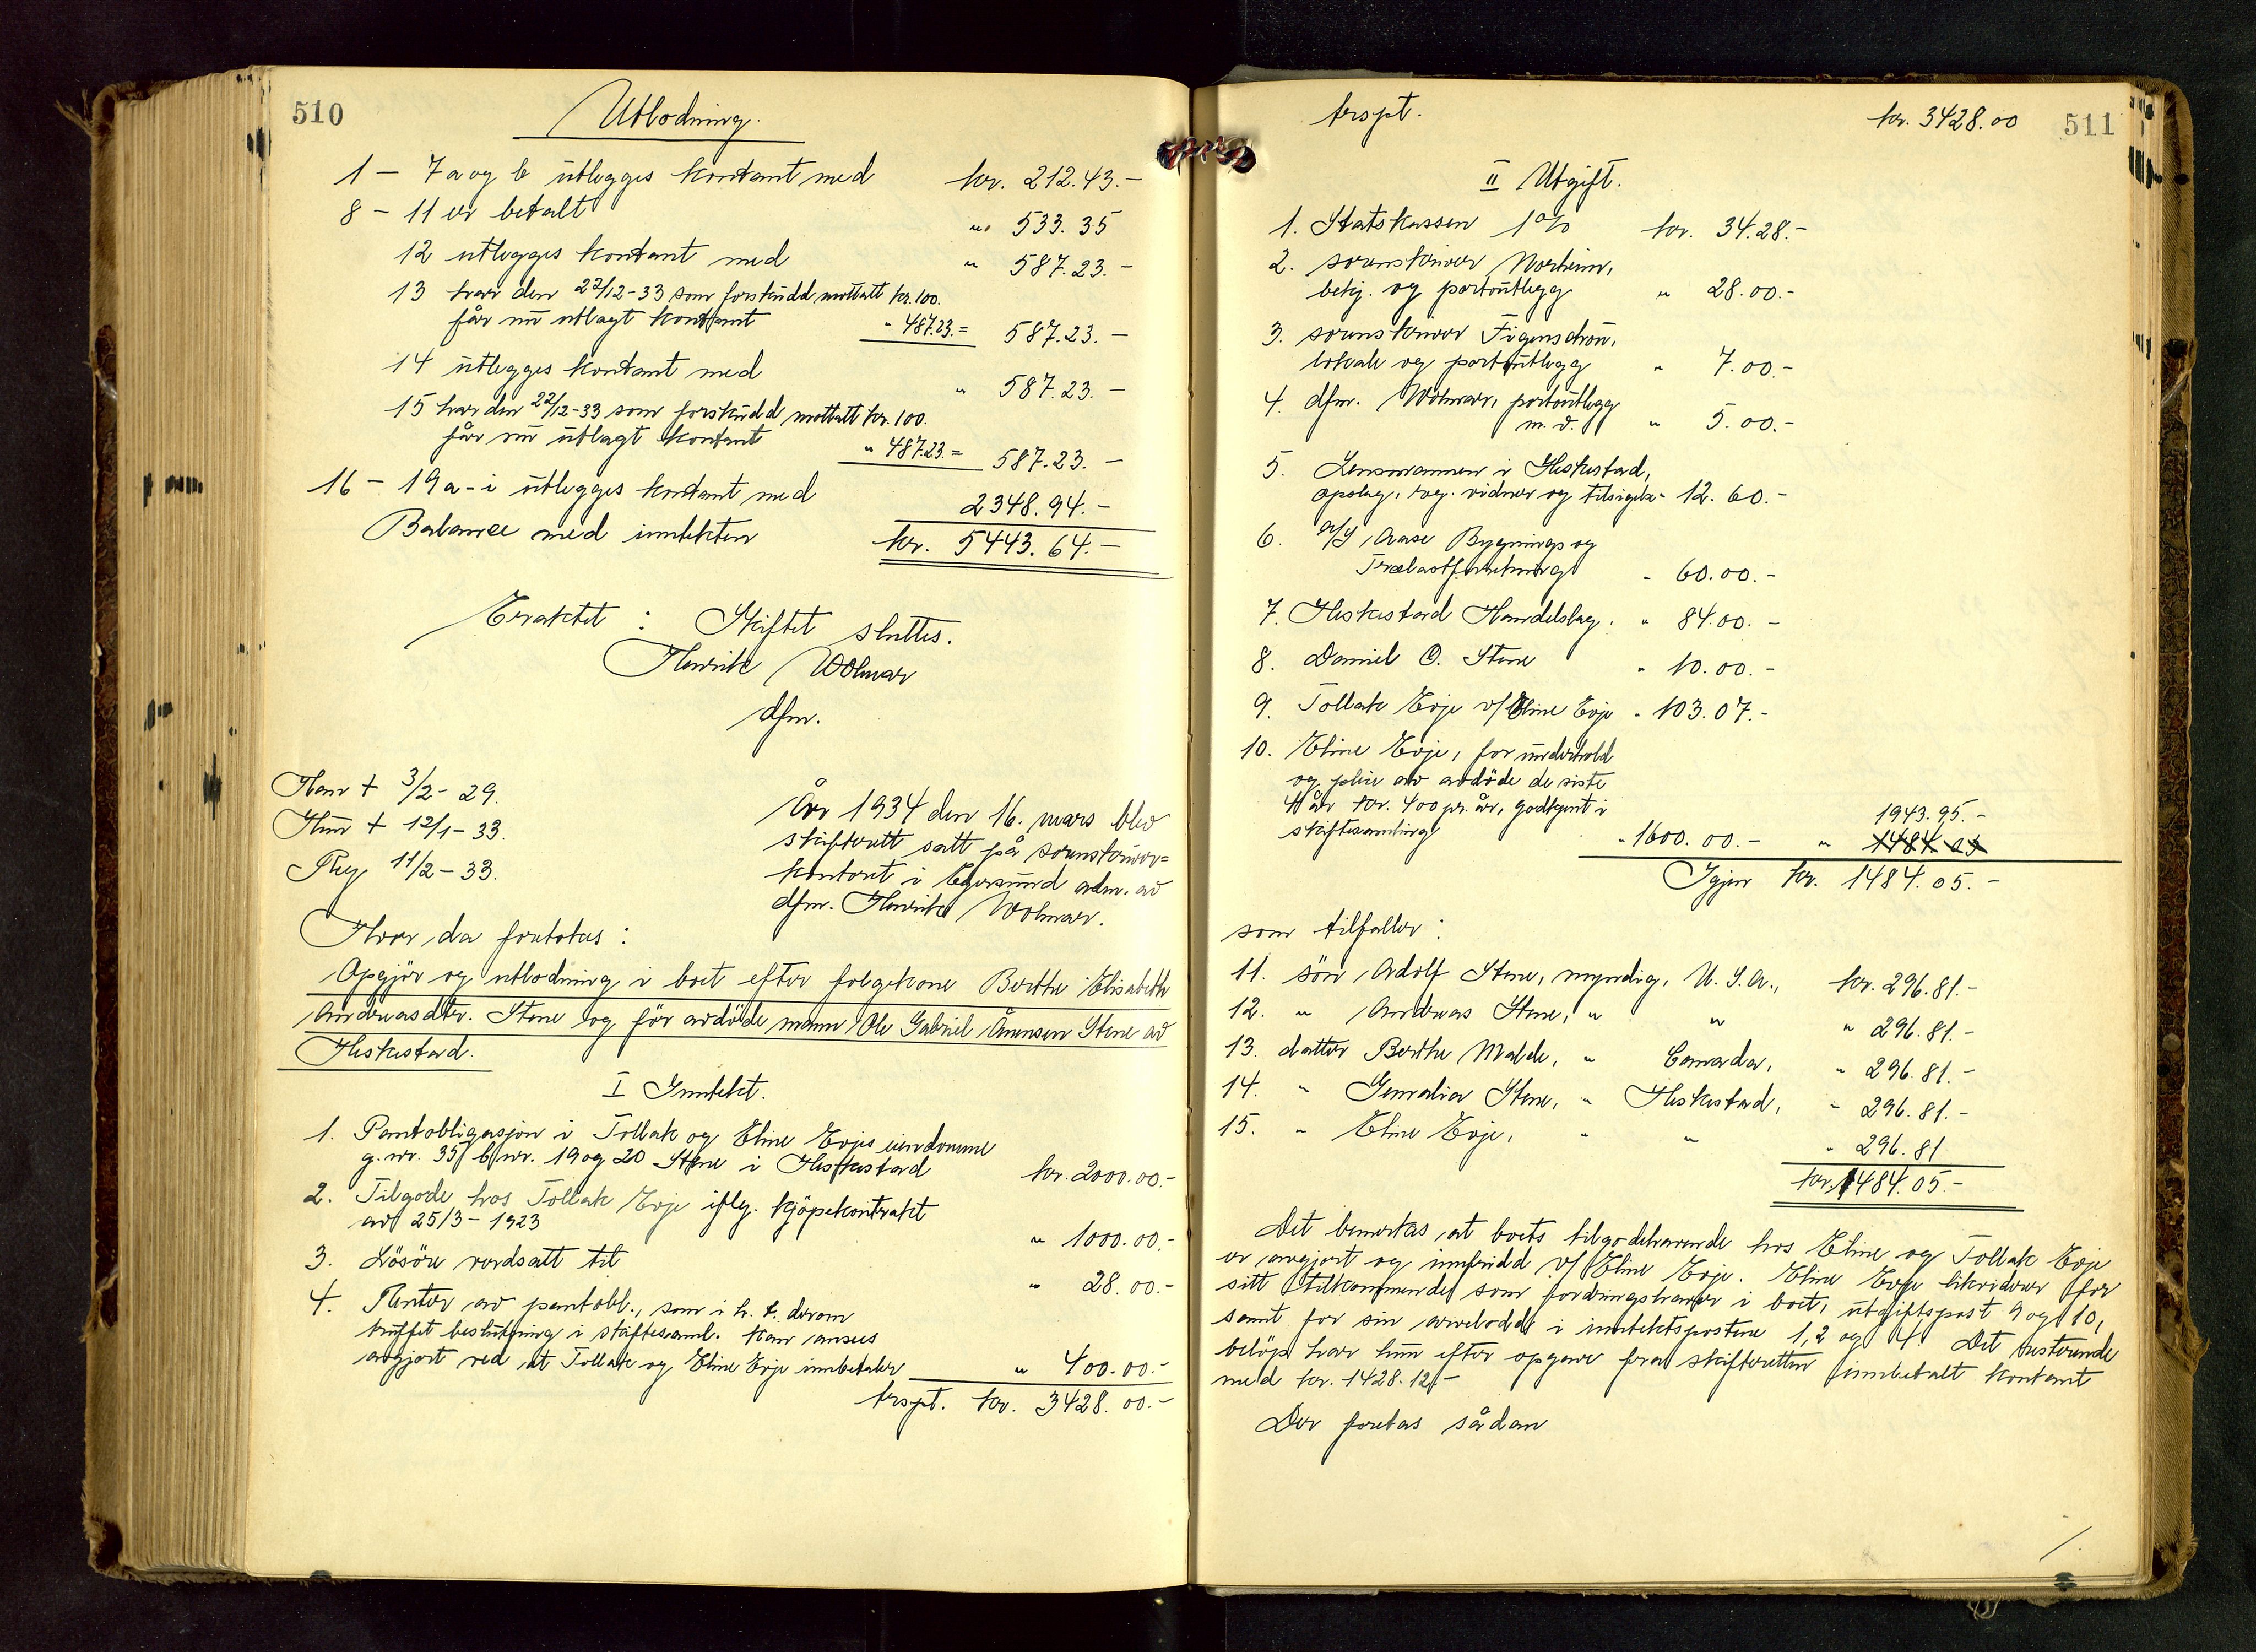 510
Utlodning.
1 - 7 a og b utlegges kontant med kr. 212.43.-
8 - 11 er betalt " 533.35
12 utlegges kontant med " 587.23.-
13 har den 22/12-33 som forskudd mottatt kr. 100.
får nu utlagt kontant " 487.23.= 587.23.-
14 utlegges kontant med " 587.23.-
15 har den 22/12-33 som forskudd mottatt kr. 100.
får nu utlagt kontant " 487.23.= 587.23.-
16 - 19 a-i utlegges kontant med 2348.94.-
Balance med inntekten kr. 5443.64.-
Eraktet : Skiftet sluttes.
Henrik Wolmar
dfm.
Han + 3/2-29.
Hun + 12/1-33.
Reg 11/2-33.
År 1934 den 16. mars blev
skifterett satt på sorenskriver=
kontoret i Egersund adm. av
dfm. Henrik Wolmar.
Hvor da foretokes :
Opgjör og utlodning i boet efter folgekone Berthe Elisabeth
Andreasdtr. Stene og för avdöde mann Ole Gabriel Ånensen Stene av
Heskestad.
I Inntekt.
1. Pantobligasjon i Tollak og Eline Evjes eiendomme
g.nr. 35 b.nr. 19 og 20 Stene i Heskestad kr. 2000.00.-
2. Tilgode hos Tollak Evje iflg. kjöpekontrakt
av 25/3-1923 " 1000.00.-
3. Lösöre verdsatt til " 28.00.-
4. Renter av pantobl., som i h. t. derom
truffet beslutning i skiftesaml. kan ansees
avgjort ved at Tollak og Eline Evje innbetaler " 400.00.-
trspt. kr. 3428.00.-
511
trspt. kr. 3428.00
II Utgift.
1. Statskassen 1% kr. 34.28.-
2. sorenskriver Norheim,
betj. og portoutlegg " 28.00.-
3. sorenskriver Figenschou,
lokale og portoutlegg " 7.00.-
4. dfm. Wolmar, portoutlegg
m.v. " 5.00.-
5. Lensmannen i Heskestad,
opslag, reg. vidner og tilsigelse " 12.60.-
6. A/S Aase Bygnings og
Trælastforretning " 60.00.-
7. Heskestad Handelslag. " 84.00.-
8. Daniel O. Stene " 10.00.-
9. Tollak Evje v/Eline Evje " 103.07.-
10. Eline Evje, for underhold
og pleie av avdöde de siste
4 år kr. 400 pr. år, godkjent i 1943.95.-
skiftesamling " 1600.00.- " 1484.05
Igjen kr. 1484.05.-
som tilfaller :
11. sön Adolf Stene, myndig, U.S.A., kr. 296.81.-
12. " Andreas Stene, " " " 296.81.-
13. datter Berthe Malde, " Canada, " 296.81.-
14. " Jenralia Stene, " Heskestad, " 296.81.-
15. " Eline Evje, " " " 296.81
kr. 1484.05.-
Det bemerkes, at boets tilgodehavende hos Eline og Tollak Evje
er avgjort og innfridd v/ Eline Evje. Eline Evje likviderer for
sitt tilkommende som fordringshaver i boet, utgiftspost 9 og 10,
samt for sin arvelodd i inntektspostene 1, 2 og 4. Det resterende
belöp har hun efter opgave fra skifteretten innbetalt kontant
med kr. 1428.12.-
Der foretas sådan